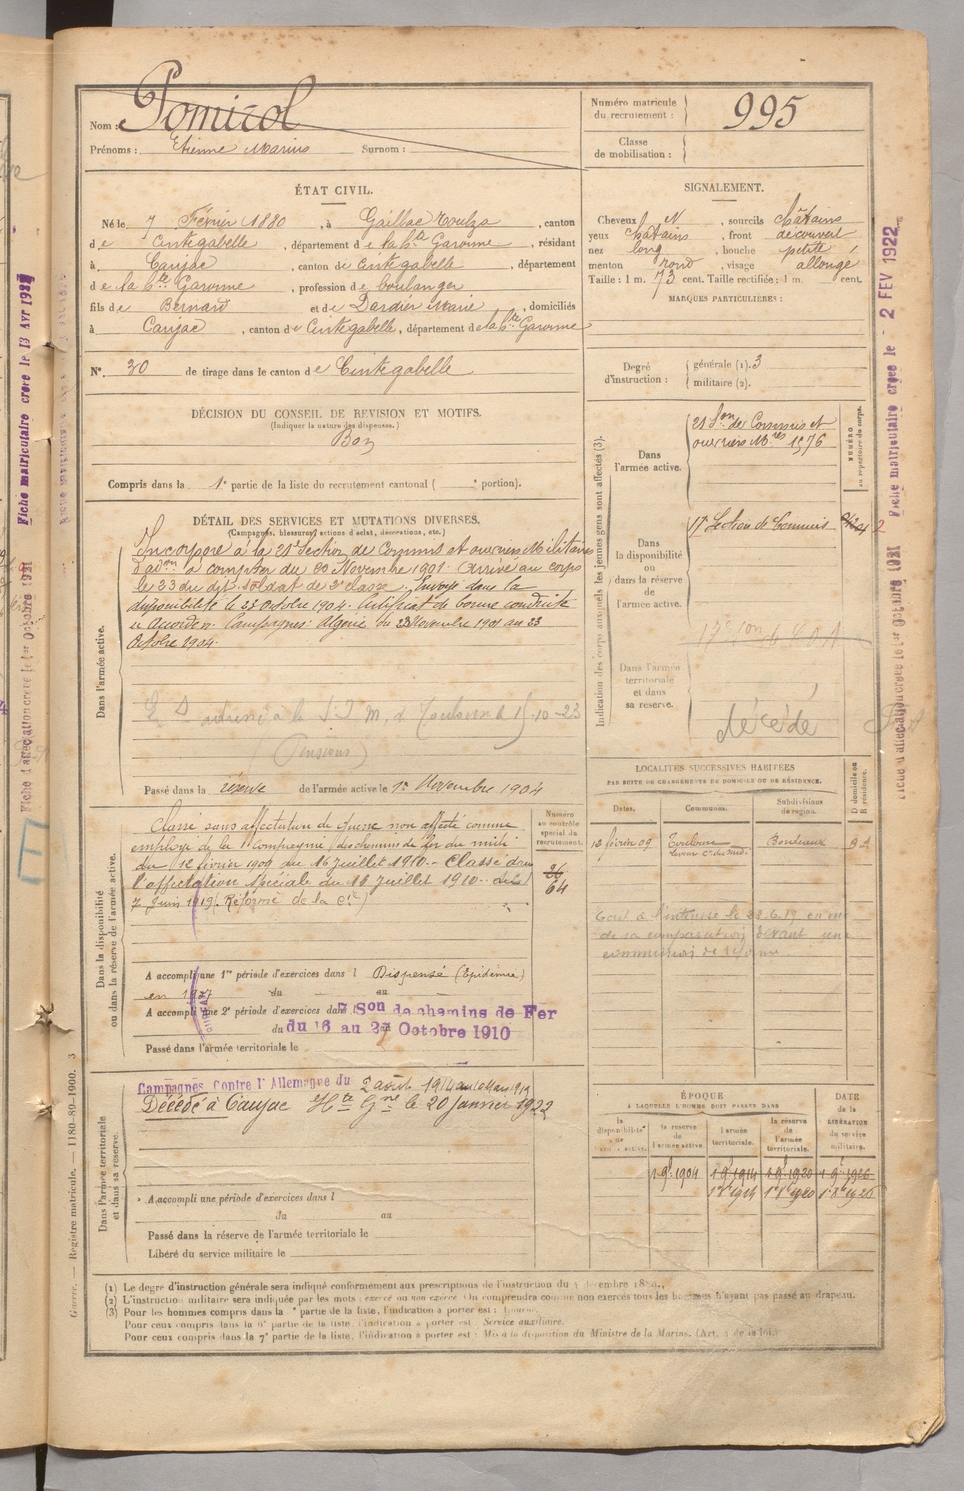 Nom : Pomirol
Prénoms : Etienne Marius Surnom :
Numéro matricule du recrutement : 995
Classe de mobilisation :
ÉTAT CIVIL.
Né le 7 Février 1880, à Gaillac Toulza, canton
de Cintegabelle, département de la Hte Garonne, résidant
à Caujac, canton de Cintegabelle, département
de la Hte Garonne, profession de boulanger
fils de Bernard et de Dardier Marie, domiciliés
à Caujac, canton de Cintegabelle, département de la Hte Garonne
N° 30 de tirage dans le canton de Cintegabelle
SIGNALEMENT.
Cheveux et, sourcils châtains
yeux châtains, front découvert
nez long, bouche petite
menton rond, visage allongé
Taille : 1 m. 73 cent. Taille rectifiée : 1 m. cent.
MARQUES PARTICULIÈRES :
Degré d'instruction : générale (1). 3
militaire (2).
DÉCISION DU CONSEIL DE REVISION ET MOTIFS.
(Indiquer la nature des dispenses.)
Bon
Compris dans la 1e partie de la liste du recrutement cantonal ( e portion).
DÉTAIL DES SERVICES ET MUTATIONS DIVERSES.
(Campagnes, blessures, actions d'éclat, décorations, etc.)
Dans l'armée active.
Incorporé à la 21e Section de Commis et ouvriers Militaires
d'aon à compter du Novembre 1901. Arrivé au corps
le 23 du dit. soldat de 2e classe. Envoyé dans la
disponibilité le 23 Octobre 1904. Certificat de bonne conduite
Accordé. Campagnes Algérie du 23 Novembre 1901 au 23
Octobre 1904.
adressé à la S I M, de Toulouse le 15-10-23
(Pensions)
Passé dans la réserve de l'armée active le 1er Novembre 1904
Dans la disponibilité ou dans la réserve de l'armée active.
Classé sans affectation de guerre non affecté comme
employé de la Compagnie des chemins de fer du midi
du (12 février 1909 au 16 juillet 1910. - Classé dans
l'affectation Spéciale du 16 juillet 1910 -
7 Juin 1919. Réforme de la Cie)
Numéro au contrôle spécial du recrutement.
64
A accompli une 1re période d'exercices dans l Dispensé (Epidémie)
en 1907 du au
A accompli une 2e période d'exercices dans 7 Son de chemins de Fer
du du 16 au Octobre 1910
Passé dans l'armée territoriale le
Dans l'armée territoriale et dans sa réserve.
Campagnes Contre l'Allemagne du 2 août 1914 au
Décédé à Caujac Hte Gne le 20 Janvier 1922
A accompli une période d'exercices dans l
du au
Passé dans la réserve de l'armée territoriale le
Libéré du service militaire le
Indication des corps auxquels les jeunes gens sont affectés (3).
NUMÉRO au répertoire du corps.
Dans l'armée active.
21 Son de Commis et
ouvriers Mres 1576
Dans la disponibilité ou dans la réserve de l'armée active.
17e Section de Commis
Dans l'armée territoriale et dans sa réserve.
décédé
LOCALITÉS SUCCESSIVES HABITÉES
PAR SUITE DE CHANGEMENTS DE DOMICILE OU DE RÉSIDENCE.
Dates. Communes. Subdivisions de région. D domicile ou R résidence.
12 février 09 Toulouse Bordeaux
de sa comparution devant une
commission de réforme
ÉPOQUE
À LAQUELLE L'HOMME DOIT PASSER DANS
DATE de la LIBÉRATION du service militaire.
la disponibilité de l'armée active. la réserve de l'armée active. l'armée territoriale. la réserve de l'armée territoriale.
1 9bre 1904 1 9bre 1914 1 9bre 1920 1 9bre 1926
(1) Le degré d'instruction générale sera indiqué conformément aux prescriptions de l'instruction du 4 décembre
(2) L'instruction militaire sera indiquée par les mots : exercé ou non exercé. On comprendra comme non exercés tous les hommes n'ayant pas passé au drapeau.
(3) Pour les hommes compris dans la e partie de la liste, l'indication à porter est :
Pour ceux compris dans la 6e partie de la liste, l'indication à porter est : Service auxiliaire.
Pour ceux compris dans la 7e partie de la liste, l'indication à porter est : Mis à la disposition du Ministre de la Marine. (Art. 4 de la loi.)
Guerre. — Registre matricule. — 1180-80-1900. 3
Fiche matriculaire créée le 13 Avr 1921
Fiche d'affectation créée le 1er Octobre 1921
Fiche matriculaire créée le - 2 FEV 1922
Fiche d'affectation créée le 1er Octobre 1921